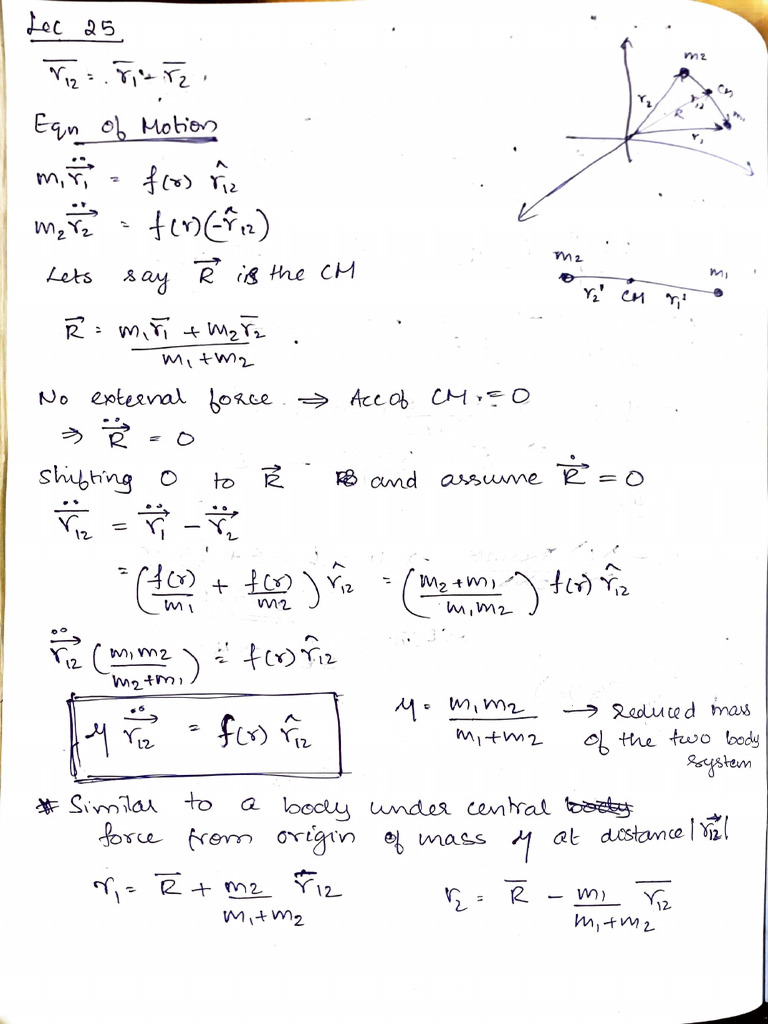 Lec 25
r̅₁₂ = r̅₁ - r̅₂
Eqn of Motion
m₁ r⃗̈₁ = f(r) r̂₁₂
m₂ r⃗̈₂ = f(r)(-r̂₁₂)
Lets say R⃗ is the CM
R⃗ = (m₁r̅₁ + m₂r̅₂)/(m₁+m₂)
m₂
CM
m₁
r₂
r₁₂
R
r₁
m₂
m₁
r₂' CM r₁'
No external force ⇒ Acc of CM = 0
⇒ R⃗̈ = 0
Shifting O to R⃗ and assume R⃗̇ = 0
r⃗̈₁₂ = r⃗̈₁ - r⃗̈₂
= (f(r)/m₁ + f(r)/m₂) r̂₁₂ = ((m₂+m₁)/(m₁m₂)) f(r) r̂₁₂
r⃗̈₁₂ (m₁m₂/(m₂+m₁)) = f(r) r̂₁₂
μ r⃗̈₁₂ = f(r) r̂₁₂
μ = m₁m₂/(m₁+m₂) → reduced mass
of the two body
system
* Similar to a body under central body
force from origin of mass μ at distance |r⃗₁₂|
r₁ = R̅ + m₂/(m₁+m₂) r̅₁₂
r₂ = R̅ - m₁/(m₁+m₂) r̅₁₂